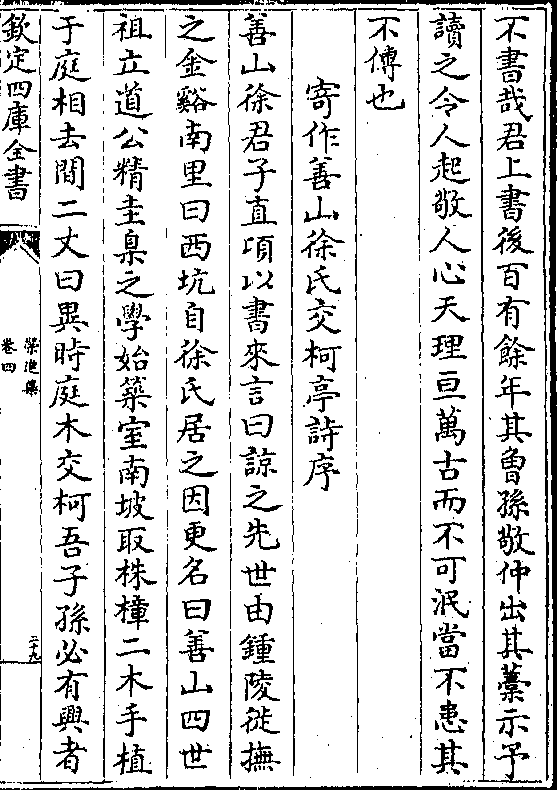 不書哉君上書後百有餘年其曾孫敬仲出其藁示予
讀之令人起敬人心天理亘萬古而不可泯當不患其
不傳也
寄作善山徐氏交柯亭詩序
善山徐君子直項以書來言曰諒之先世由鍾陵徙撫
之金谿南里曰西坑自徐氏居之因更名曰善山四世
祖立道公精圭臬之學始築室南坡取株樟二木手植
于庭相去間二丈曰異時庭木交柯吾子孫必有興者
欽定四庫全書
滎池集
卷四
二十九